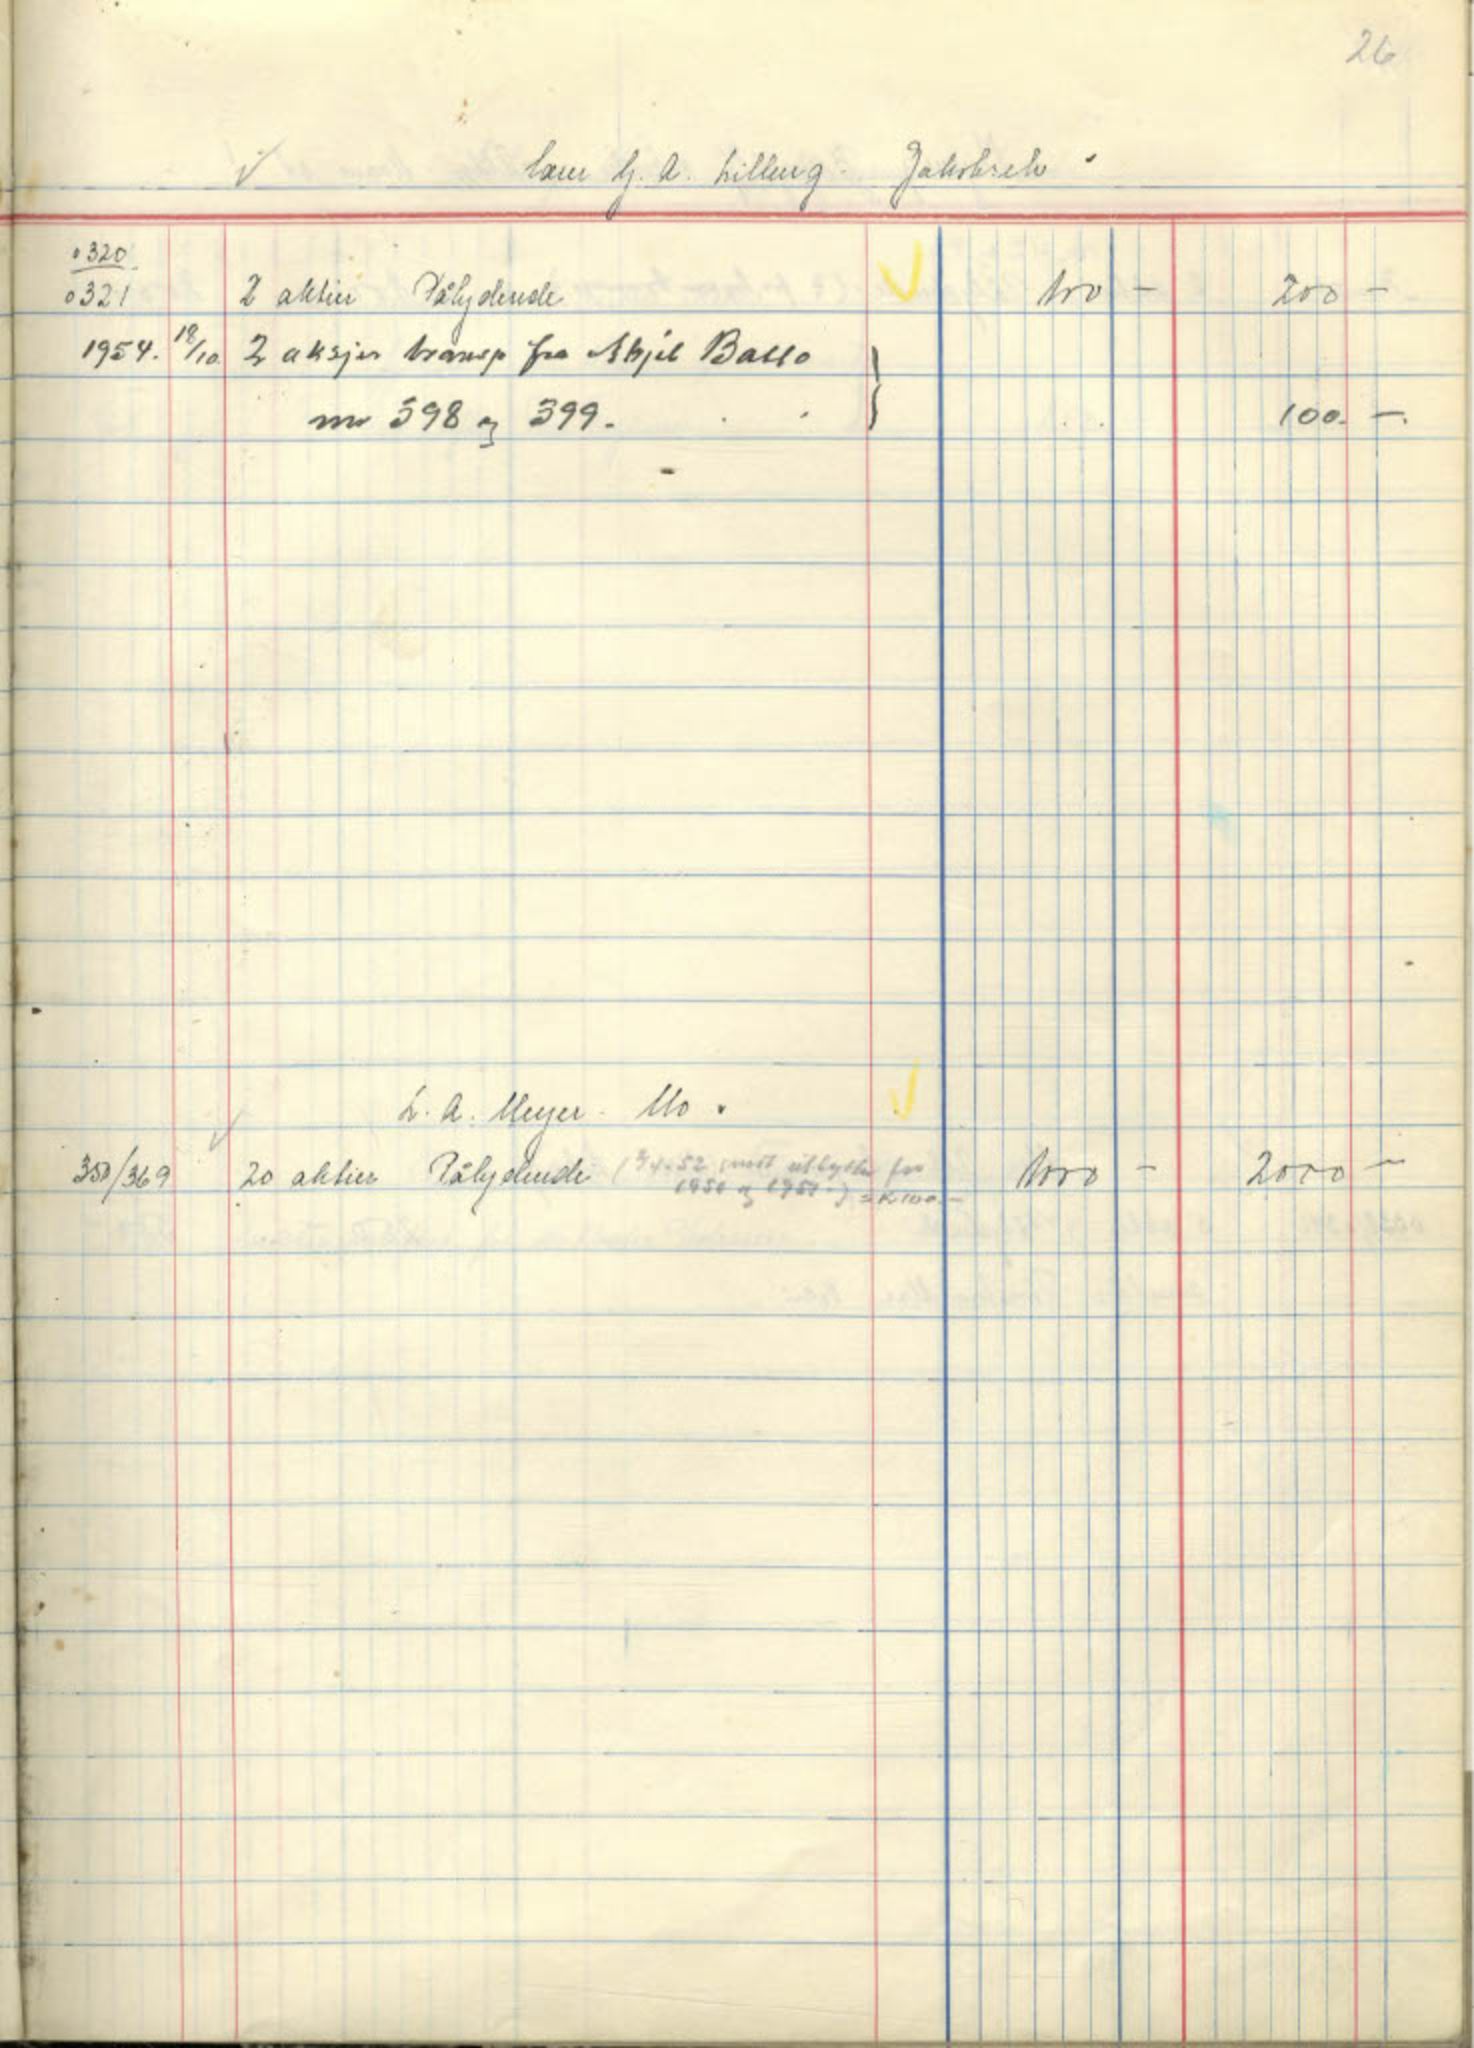 26
G. A. Lillevig. Jakobselv
320
321 2 aktier Pålydende 100 - 200 -
1954. 18/10. 2 aksjer transp fra Skjel Basso
nr 398 og 399. 100. -
L. A. Meyer. Mo.
350/369 20 aktier Pålydende ( 3/4.52 sendt utbytte for 1000 - 2000 -
1950 og 1951.) = K 100.-